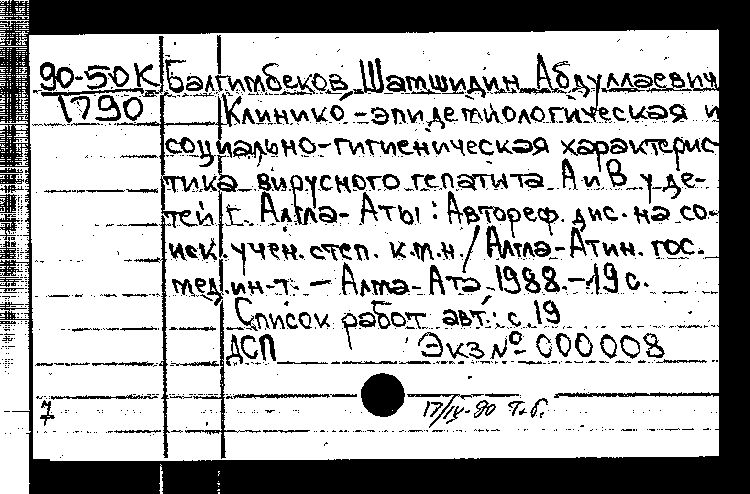 90-50К Балгимбеков Шамшидин Абдуллаевич
1790 Клинико-эпидемиологическая и
социально-гигиеническая характерис-
тика вирусного гепатита А и В у де-
тей г. Алма-Аты: Автореф. дис. на со-
иск. учен. степ. к.м.н. / Алма-Атин. гос.
мед. ин-т. - Алма-Ата, 1988. - 19 с.
Список работ авт.: с. 19
ДСП Экз № 000008
17/IV-90